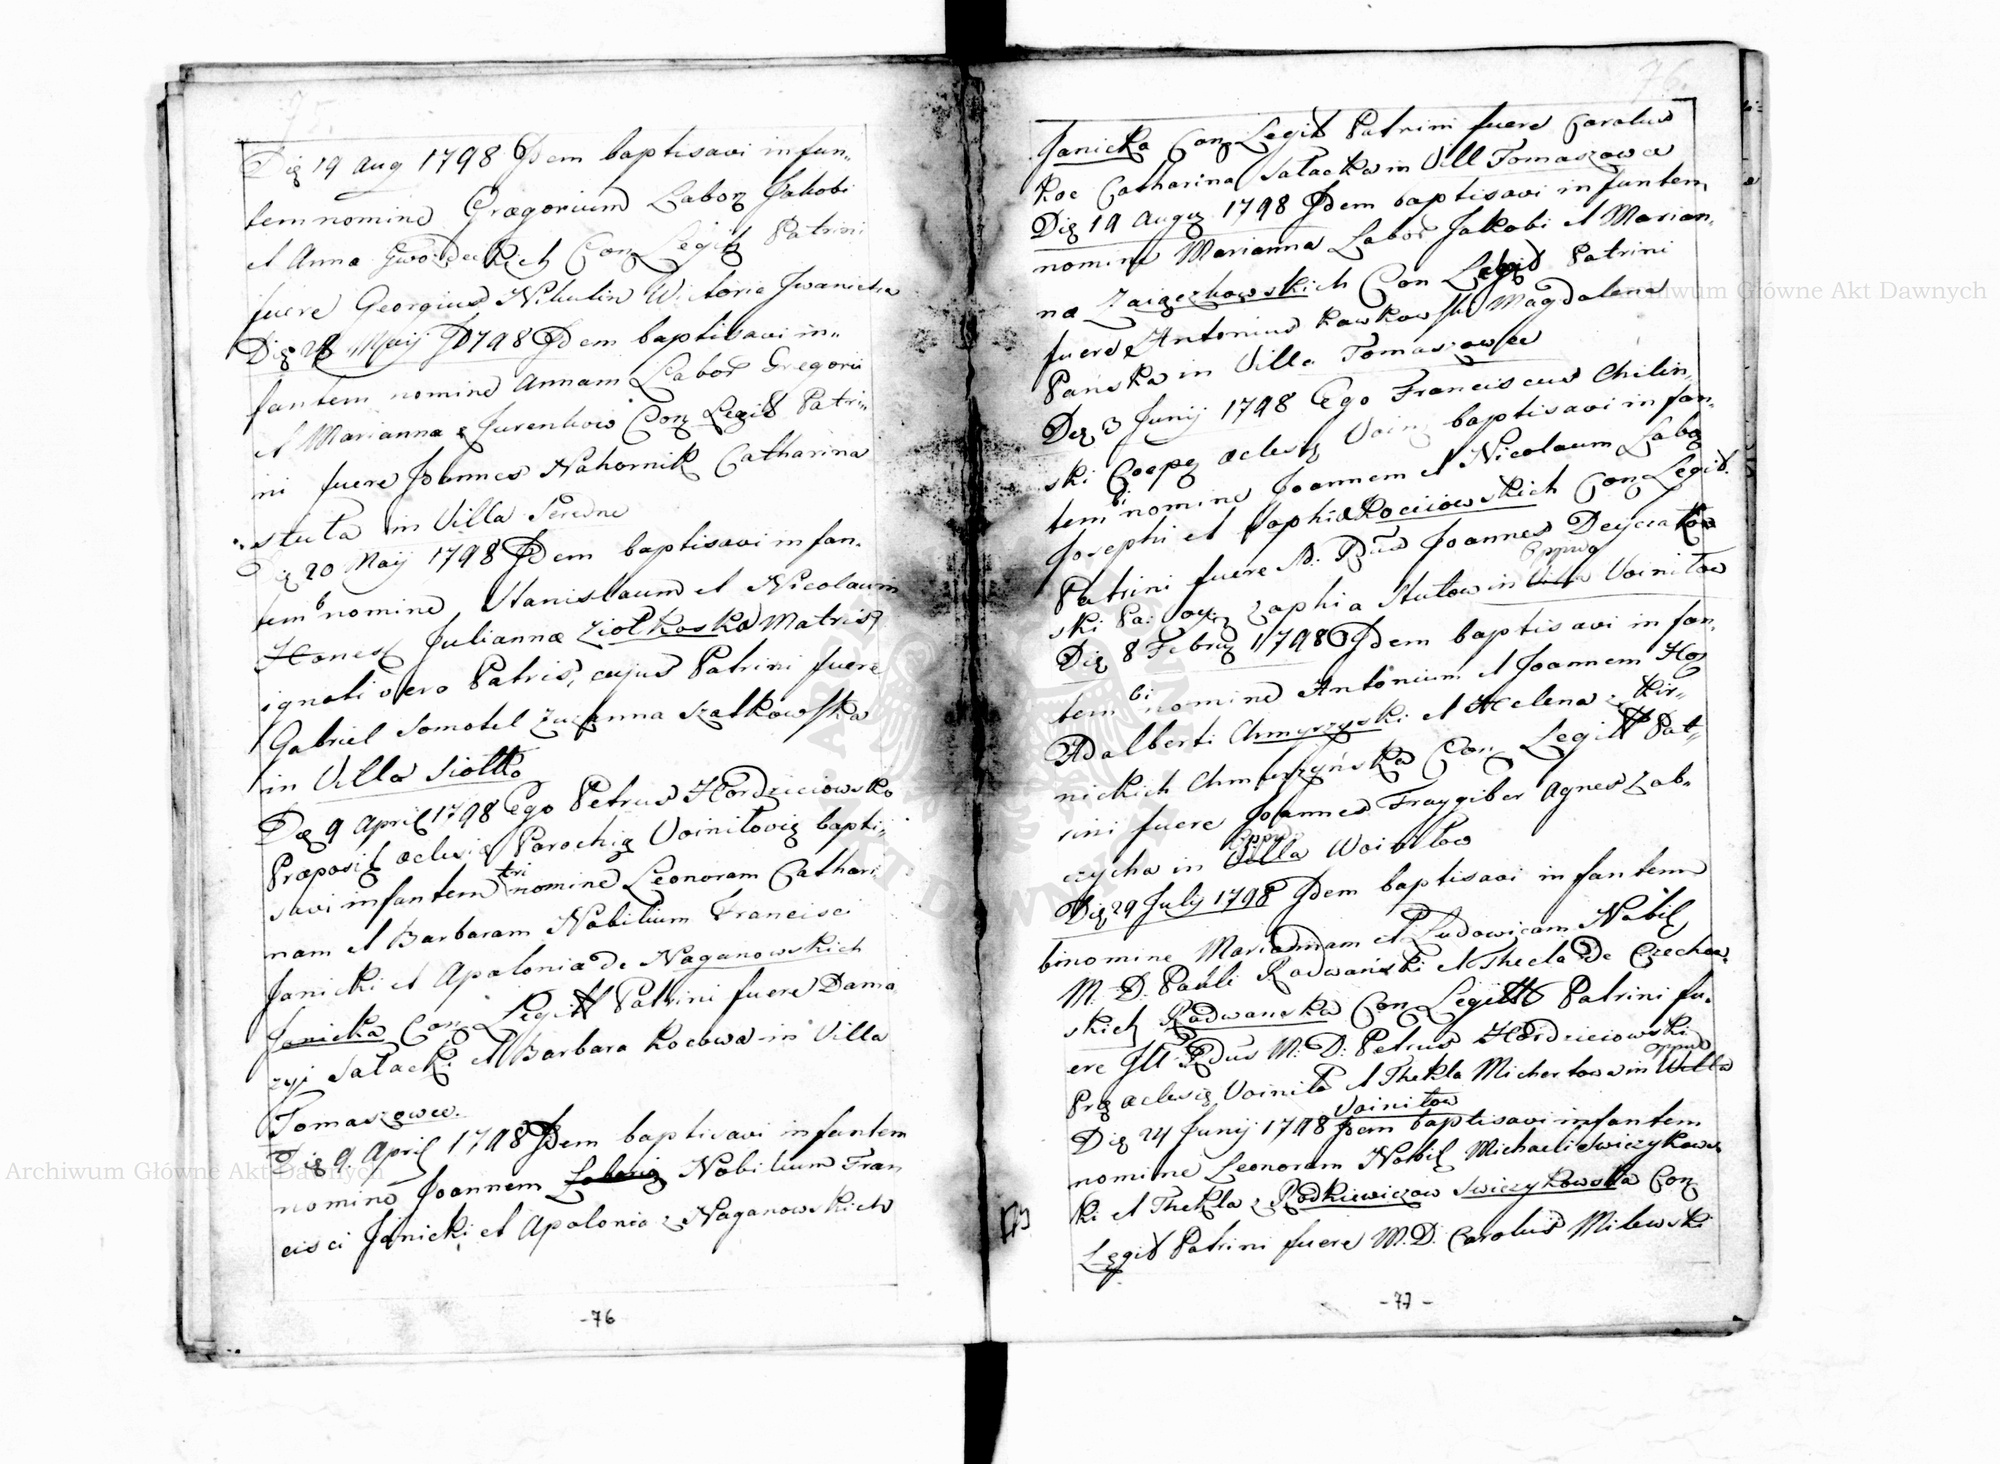 75.
Die 19 Aug 1798 Idem baptisavi infan„
tem nomine Gregorium Labor Jakobi
et Anna Gwozdeckich Con Legit Patrini
fuere Georgius Nikulin Wictoria Iwanicka
Die 28 Maij 1798 Idem baptisavi in„
fantem nomine Annam Labor Gregorii
et Marianna Con Legit Patri„
ni fuere Joannes Nahornik Catharina
stuta in Villa Seredne
Die 20 Maij 1798 Idem baptisavi infan„
tem b nomine Stanislaum et Nicolaum
Honest Julianna Ziołkoska Matris
ignoti vero Patris, cujus Patrini fuere
Gabriel Somotel Zuzanna Szatkowska
in Villa Siołko
Die 9 April 1798 Ego Petrus Hordziciowsko
Præposit aclesiæ Parochiæ Voiniloviæ bapti„
savi infantem tri nomine Leonoram Cathari
nam et Barbaram Nobilium Francisci
Janicki et Apolonia de Naganowskich
Janicka Con Legitt Patrini fuere Dama
zyi Sałacki et Barbara Kocowa in Villa
Tomaszowce.
Die 9 April 1798 Idem baptisavi infantem
nomine Joannem Laborio Nobilium Fran
cisci Janicki et Apolonia z Naganowskich
-76
76.
Janicka Con Legit Patrini fuere Carolus
Koc Catharina Sałacka in Vill Tomaszowce
Die 19 Augu 1798 Idem baptisavi infantem
nomine Marianna Labor Jakobi et Marian„
na Zaigczkowskich Con Legit Patrini
fuere Antonius Kawkowski Magdalena
Pańska in Villa Tomaszowce
Die 3 Junij 1798 Ego Franciscus Chilin„
ski Coepe aclesiæ Voin baptisavi infan„
tem bi nomine Joannem et Nicolaum Labo
Josephi et Sophia Kociiowskich Con Legit.
Patrini fuere A. Rdus Joannes Deycakow
ski Pa: Zophia Stutow in Villa Oppido Voiniłow
Die 8 Febru 1798 Idem baptisavi infan„
tem bi nomine Antonium et Joannem Ho
Adalberti Chmyrzyski et Helena z Kir„
nickich Chmyrzyńska Con Legitt Pat„
rini fuere Joannes Fraygiber Agnes Zab„
czycha in Villa Oppi Woiniłow
Die 29 July 1798 Idem baptisavi infantem
binomine Mariannam et Ludowicam Nobil
M. D. Pauli Radwański et Thecla De Czechow
skich Radwanska Con Legitt Patrini fu„
ere Ill Rdus M: D: Petrus Hordziciowski
Præ aclesiæ Voinila et Thekla Michortowa in Willa oppid
Voiniłow
Die 24 Junij 1798 Idem baptisavi infantem
nomine Leonoram Nobil Michaeli Swiczykows
ki et Thekla z Rodkiewiczow Swiczykowska Con
Legit Patrini fuere M.D. Carolus Milewski
-77-
Archiwum Główne Akt Dawnych
Archiwum Główne Akt Dawnych